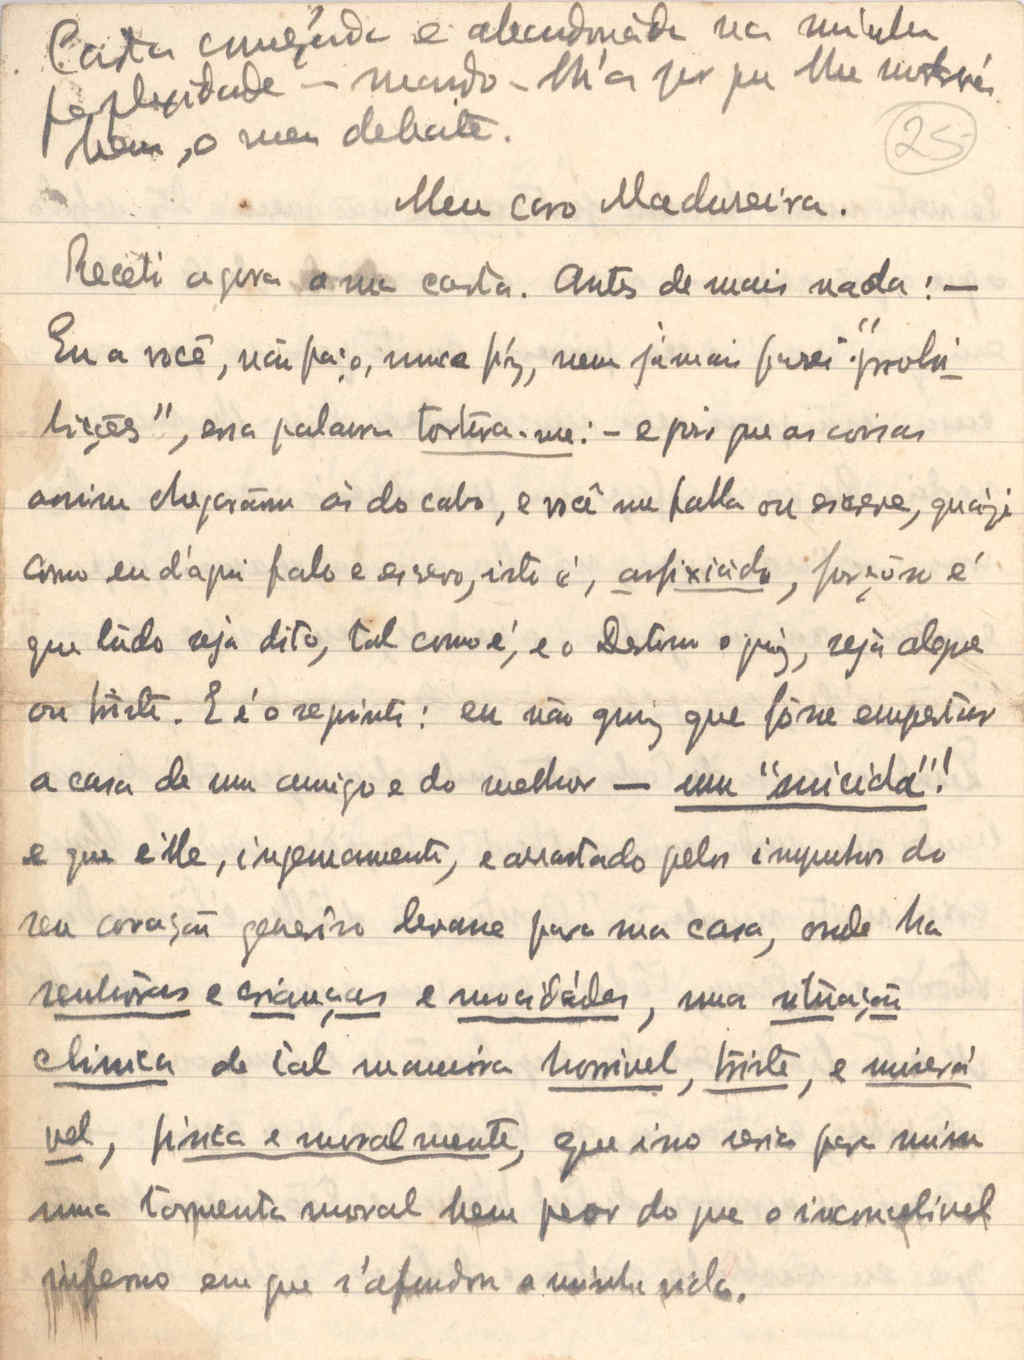 Carta começada e abandonada na minha
perplexidade — mando-lh'a por que lhe mostra
bem, o meu debate.
25
Meu caro Madureira.
Recebi agora a sua carta. Antes de mais nada: —
Eu a você, não faço, nunca fiz, nem jámais farei "probi-
bições", essa palavra tortura-me: — e pois que as coisas
assim chegaram ás do cabo, e você me falla ou escreve, quázi
como eu d'aqui falo e escrevo, isto é, asfixiado, forçôso é
que tudo seja dito, tal como é, e o Destino o quiz, seja alegre
ou triste. E é o seguinte: eu não quiz que fôsse empestar
a casa de um amigo e do melhor — um "suicida"!
e que êlle, ingenuamente, e arrastado pelos impulsos do
seu coração generôso levasse para sua casa, onde ha
senhôras e crianças e mocidádes, uma situação
clinica de tal maneira horrivel, triste, e miserá
vel, fisica e moralmente, que isso seria para mim
uma tormenta moral bem peor do que o inconcebivel
inferno em que s'afundou a minha vida.